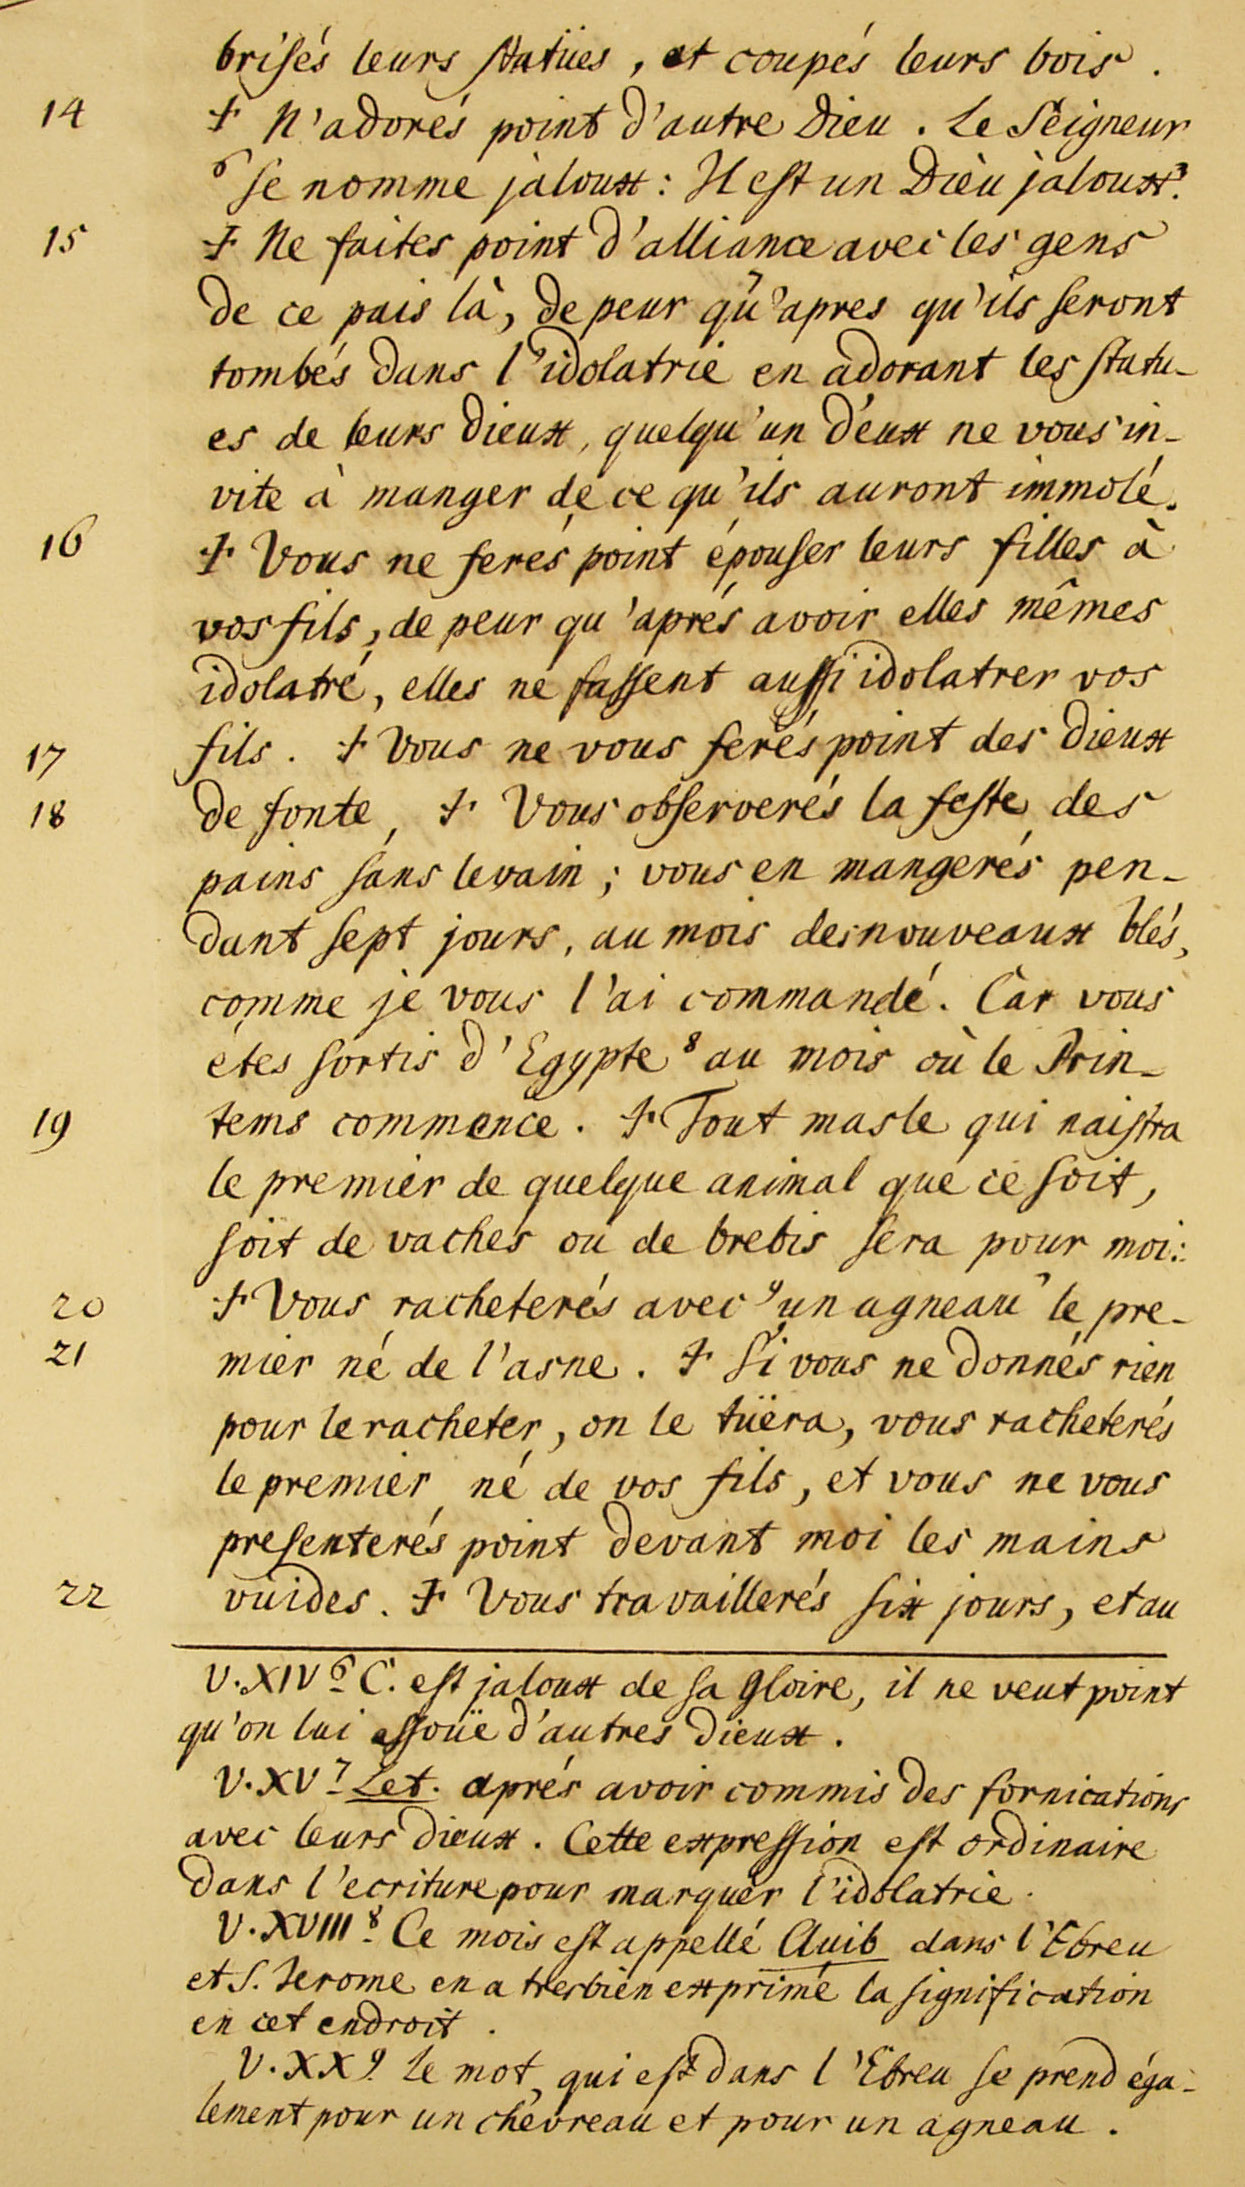 brisés leurs statües, et coupés leurs bois.
14 ☩ N'adorés point d'autre Dieu. Le Seigneur
⁶ se nomme jaloux: Il est un Dieu jaloux.
15 ☩ Ne faites point d'alliance avec les gens
de ce païs là, de peur ⁷ qu'apres qu'ils seront
tombés dans l'idolatrie en adorant les statu-
es de leurs Dieux, quelqu'un d'eux ne vous in-
vite à manger de ce qu'ils auront immolé.
16 ☩ Vous ne ferés point épouser leurs filles à
vos fils, de peur qu'aprés avoir elles mêmes
idolatré, elles ne fassent aussi idolatrer vos
17 fils. ☩ Vous ne vous ferés point des Dieux
18 de fonte, ☩ Vous observerés la feste des
pains sans levain; vous en mangerés pen-
dant sept jours, au mois des nouveaux blés,
comme je vous l'ai commandé. Car vous
étes sortis d'Egypte ⁸ au mois où le Prin-
19 tems commence. ☩ Tout masle qui naistra
le premier de quelque animal que ce soit,
soit de vaches ou de brebis sera pour moi:
20 ☩ Vous racheterés avec ⁹ un agneau le pre-
21 mier né de l'asne. ☩ Si vous ne donnés rien
pour le racheter, on le tüera, vous racheterés
le premier né de vos fils, et vous ne vous
presenterés point devant moi les mains
22 vuides. ☩ Vous travaillerés six jours, et au
V. XIV ⁶ C. est jaloux de sa gloire, il ne veut point
qu'on lui assoüe d'autres Dieux.
V. XV ⁷ Let. aprés avoir commis des fornications
avec leurs dieux. Cette expression est ordinaire
dans l'ecriture pour marquer l'idolatrie.
V. XVIII ⁸ Ce mois est appellé Auib dans l'Ebreu
et S. Jerome en a tresbien exprimé la signification
en cet endroit.
V. XX 9. Le mot, qui est dans l'Ebreu se prend éga-
lement pour un chevreau et pour un agneau.